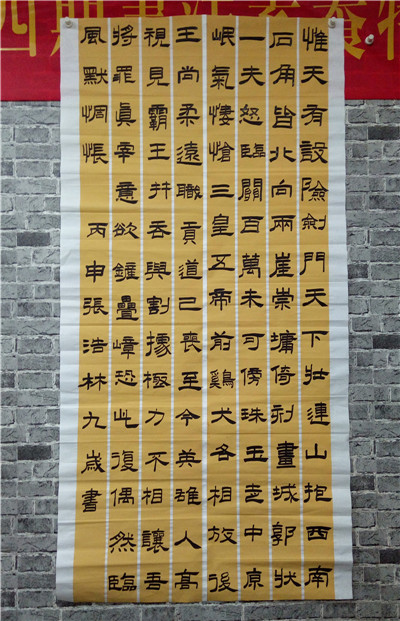 四期書法
惟天有設險劍門天下壯連山抱西南
石角皆北向兩崖崇墉倚刻畫城郭狀
一夫怒臨關百萬未可傍珠玉走中原
岷氣悽愴三皇五帝前鷄犬各相放後
王尚柔遠職貢道已喪至今英雄人高
視見霸王并吞與割據極力不相讓吾
將罪眞宰意欲鏟疊嶂恐此復偶然臨
風默惆悵 丙申張浩林九歲書